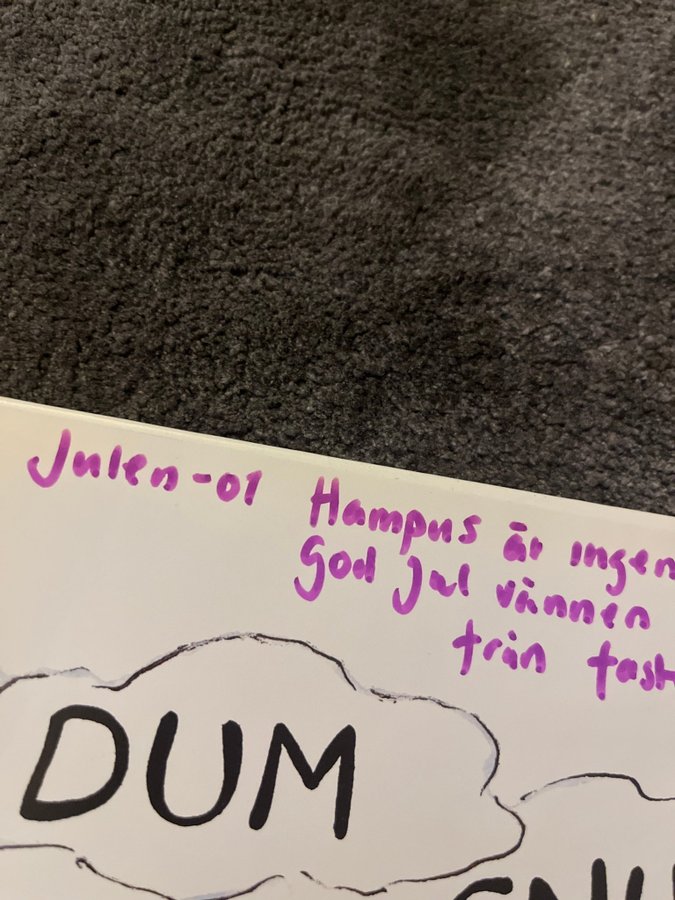 Julen-01 Hampus är ingen
God Jul vännen
från
DUM